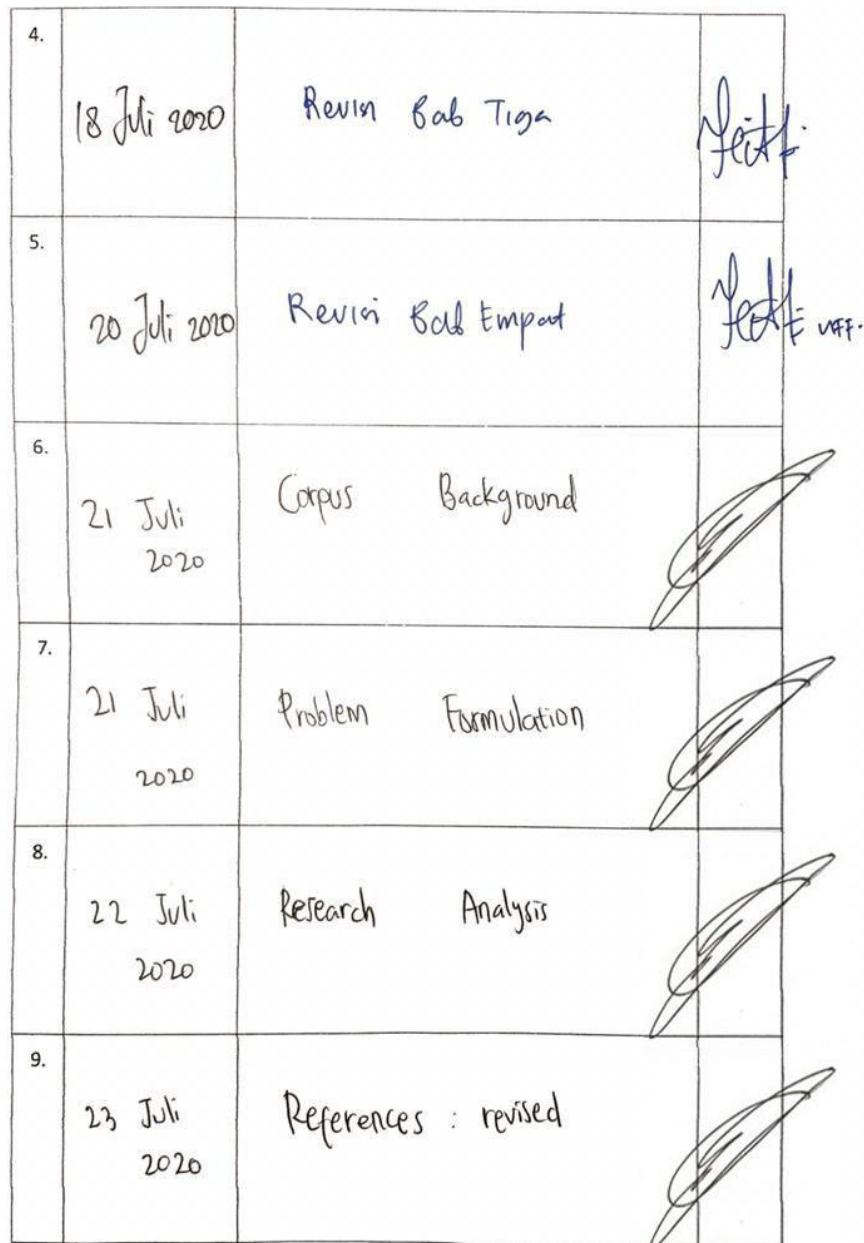 4.
18 Juli 2020
Revisi Bab Tiga
5.
20 Juli 2020
Revisi Bab Empat
6.
21 Juli
2020
Corpus Background
7.
21 Juli
2020
Problem Formulation
8.
22 Juli
2020
Research Analysis
9.
23 Juli
2020
References : revised